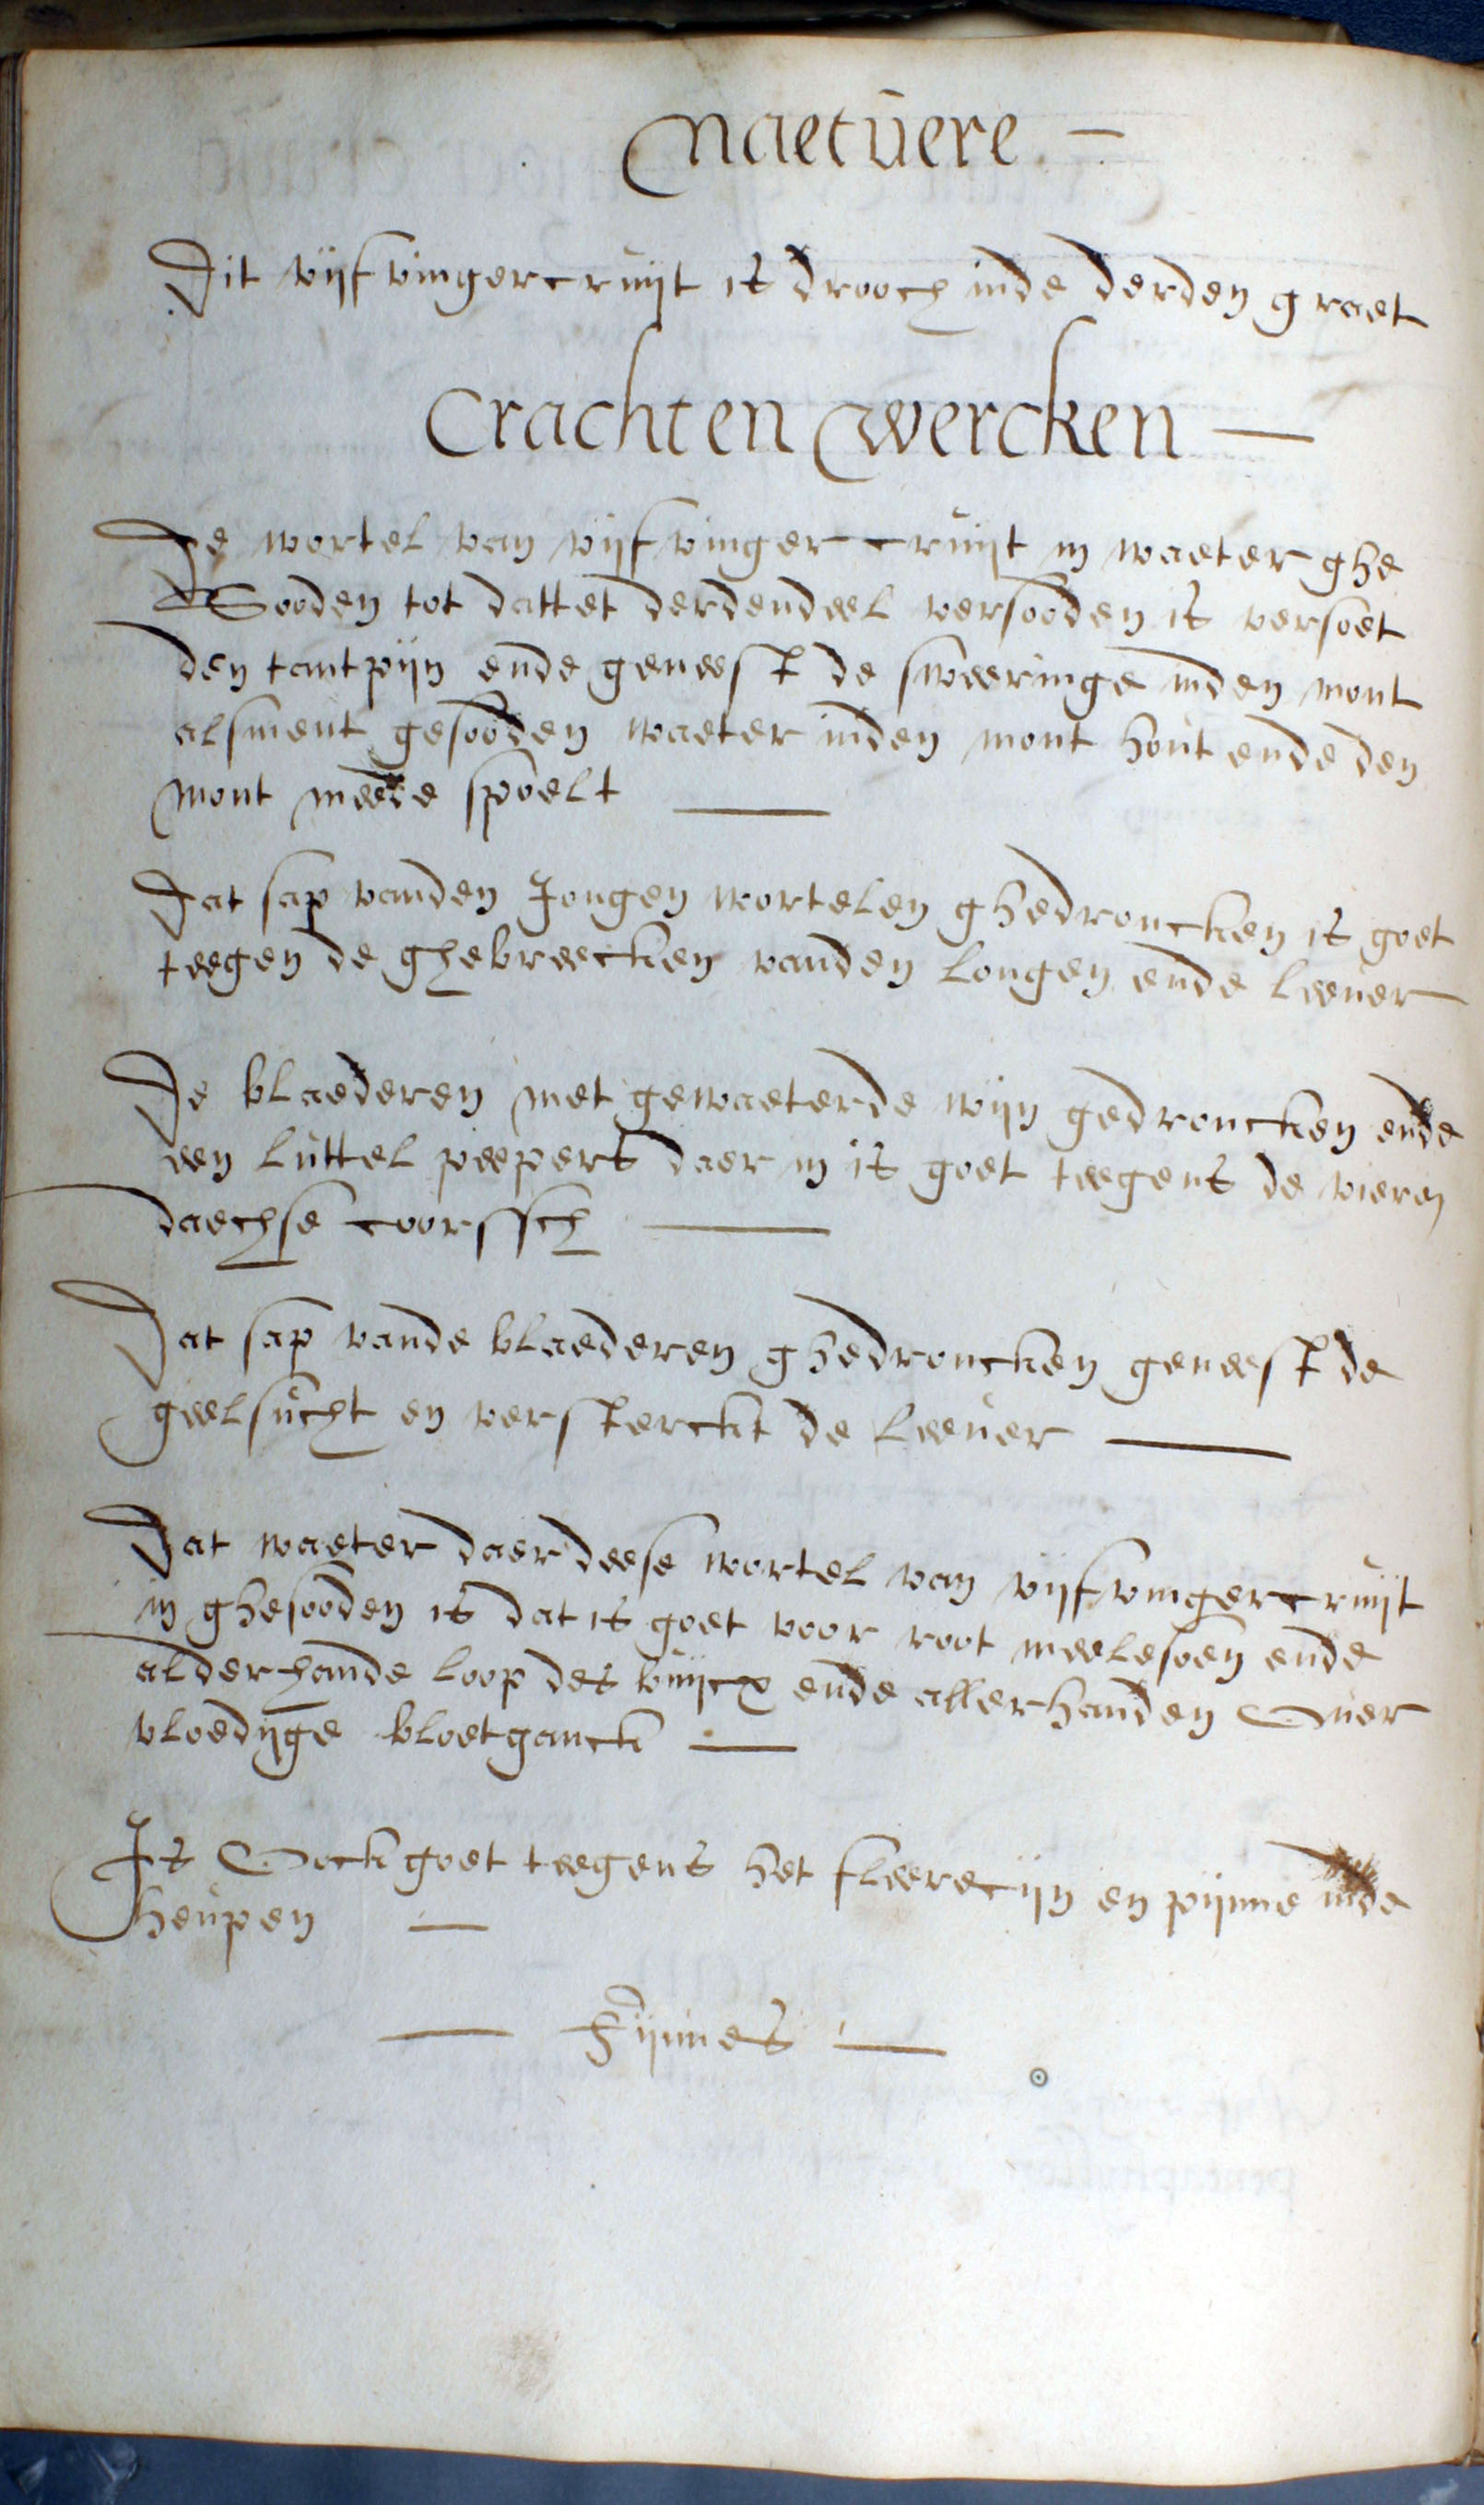 Naetuere —
Dit vijfvingercruijt is drooch inde derden graet
Crachten wercken —
De wortel van vijfvingercruijt in waeter ghe
Sooden tot dattet derdendeel versooden is versoet
den tantpijn ende geneest de sweeringe inden mont
alsment gesooden waeter inden mont hout ende den
mont meede spoelt —
Dat sap vanden Jongen wortelen ghedroncken is goet
teegen de ghebreecken vanden longen ende leever
De blaederen met gewaeterde wijn gedroncken ende
een luttel peepers daer in is goet teegens de vieren
daechse coorssch —
Dat sap vande blaederen ghedroncken geneest de
geelsucht en versterckt de leever —
Dat waeter daer deese wortel van vijfvingercruijt
in ghesooden is dat is goet voor root meelesoen ende
alderhande loop des buijcx ende allerhanden Over
vloedijge bloetganck —
Is Oock goet teegens het fleerecijn en pijnne inde
heupen —
— Fijnnes —